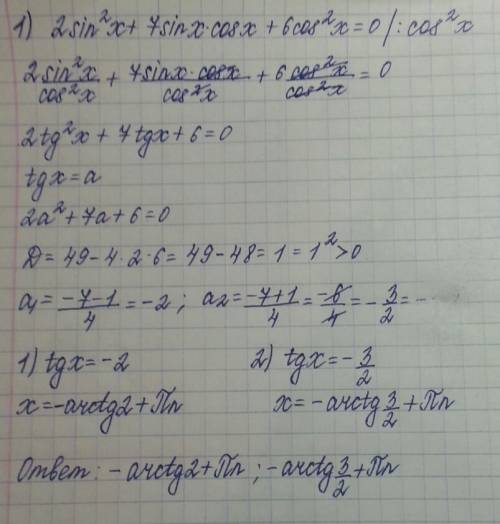 1) 2sin²x + 7sinx·cosx + 6cos²x = 0 /: cos²x
2sin²x/cos²x + 7sinx·cosx/cos²x + 6cos²x/cos²x = 0
2tg²x + 7tgx + 6 = 0
tgx = a
2a² + 7a + 6 = 0
D = 49 - 4·2·6 = 49 - 48 = 1 = 1² > 0
a₁ = (-7-1)/4 = -2 ; a₂ = (-7+1)/4 = -6/4 = -3/2 = -
1) tgx = -2 2) tgx = -3/2
x = -arctg2 + Пn x = -arctg 3/2 + Пn
Ответ: -arctg2 + Пn ; -arctg 3/2 + Пn